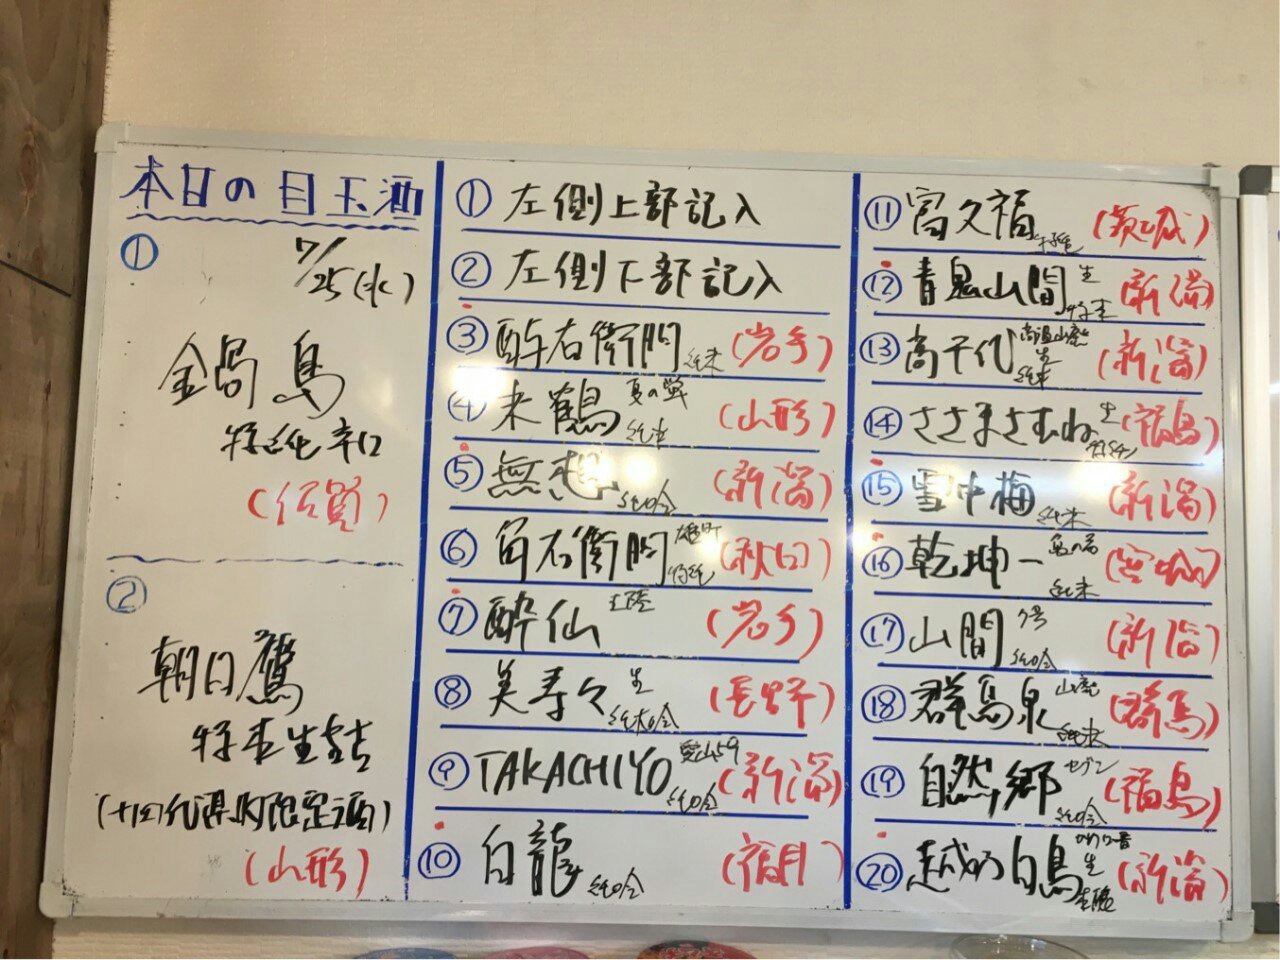 本日の目玉酒
①
7/25(水)
鍋島
特純辛口
(佐賀)
②
朝日鷹
特本生詰
(十四代県内限定酒)
(山形)
① 左側上部記入
② 左側下部記入
③ 酔右衛門 純米 (岩手)
④ 来鶴 純米 (山形)
⑤ 無想 純吟 (新潟)
⑥ 角右衛門 雄町 特純 (秋田)
⑦ 酔仙 (岩手)
⑧ 美寿々 生 純吟 (長野)
⑨ TAKACHIYO 愛山59 純吟 (新潟)
⑩ 白龍 純吟 (福井)
⑪ 富久福 特純 (茨城)
⑫ 青鬼山間 生 特本 (新潟)
⑬ 高千代 生 純米 (新潟)
⑭ ささまさむね 生 特純 (福島)
⑮ 雪中梅 純米 (新潟)
⑯ 乾坤一 純米 (宮城)
⑰ 山間 純吟 (新潟)
⑱ 群馬泉 山廃 純米 (群馬)
⑲ 自然郷 セブン 純吟 (福島)
⑳ 越の白鳥 生 (新潟)